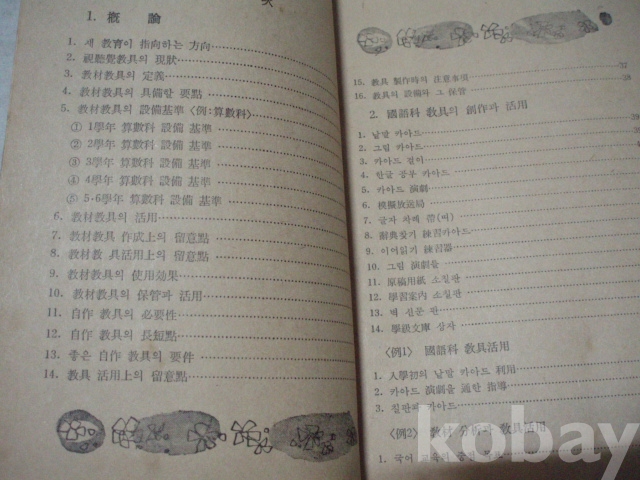 次
1. 概論
1. 새 敎育이 指向하는 方向
2. 視聽覺敎具의 現狀
3. 敎材敎具의 定義
4. 敎材敎具의 具備할 要點
5. 敎材敎具의 設備基準〈例:算數科〉
① 1學年 算數科 設備 基準
② 2學年 算數科 設備 基準
③ 3學年 算數科 設備 基準
④ 4學年 算數科 設備 基準
⑤ 5·6學年 算數科 設備 基準
6. 敎材敎具의 活用
7. 敎材敎具 作成上의 留意點
8. 敎材敎具活用上의 留意點
9. 敎材敎具의 使用効果
10. 敎材敎具의 保管과 活用
11. 自作 敎具의 必要性
12. 自作 敎具의 長短點
13. 좋은 自作 敎具의 要件
14. 敎具 活用上의 留意點
15. 敎具 製作時의 注意事項 37
16. 敎具의 設備와 그 保管
2. 國語科 敎具의 創作과 活用
1. 낱말 카아드
2. 그림 카아드
3. 카아드 걸이
4. 한글 공부 카아드
5. 카아드 演劇
6. 模擬放送局
7. 글자 차례
8. 辭典찾기 練習카아드
9. 이어읽기 練習器
10. 그림 演劇을
11. 原稿用紙 소칠판
12. 學習案内 소칠판
13. 벽 신문 판
14. 學級文庫 상자
〈例1〉 國語科 敎具活用
1. 入學初의 낱말 카아드 利用
2. 카아드 演劇을 通한 指導
3. 칠판과 카아드
〈例2〉 敎材 分析과 敎具活用
1. 국어
kobay